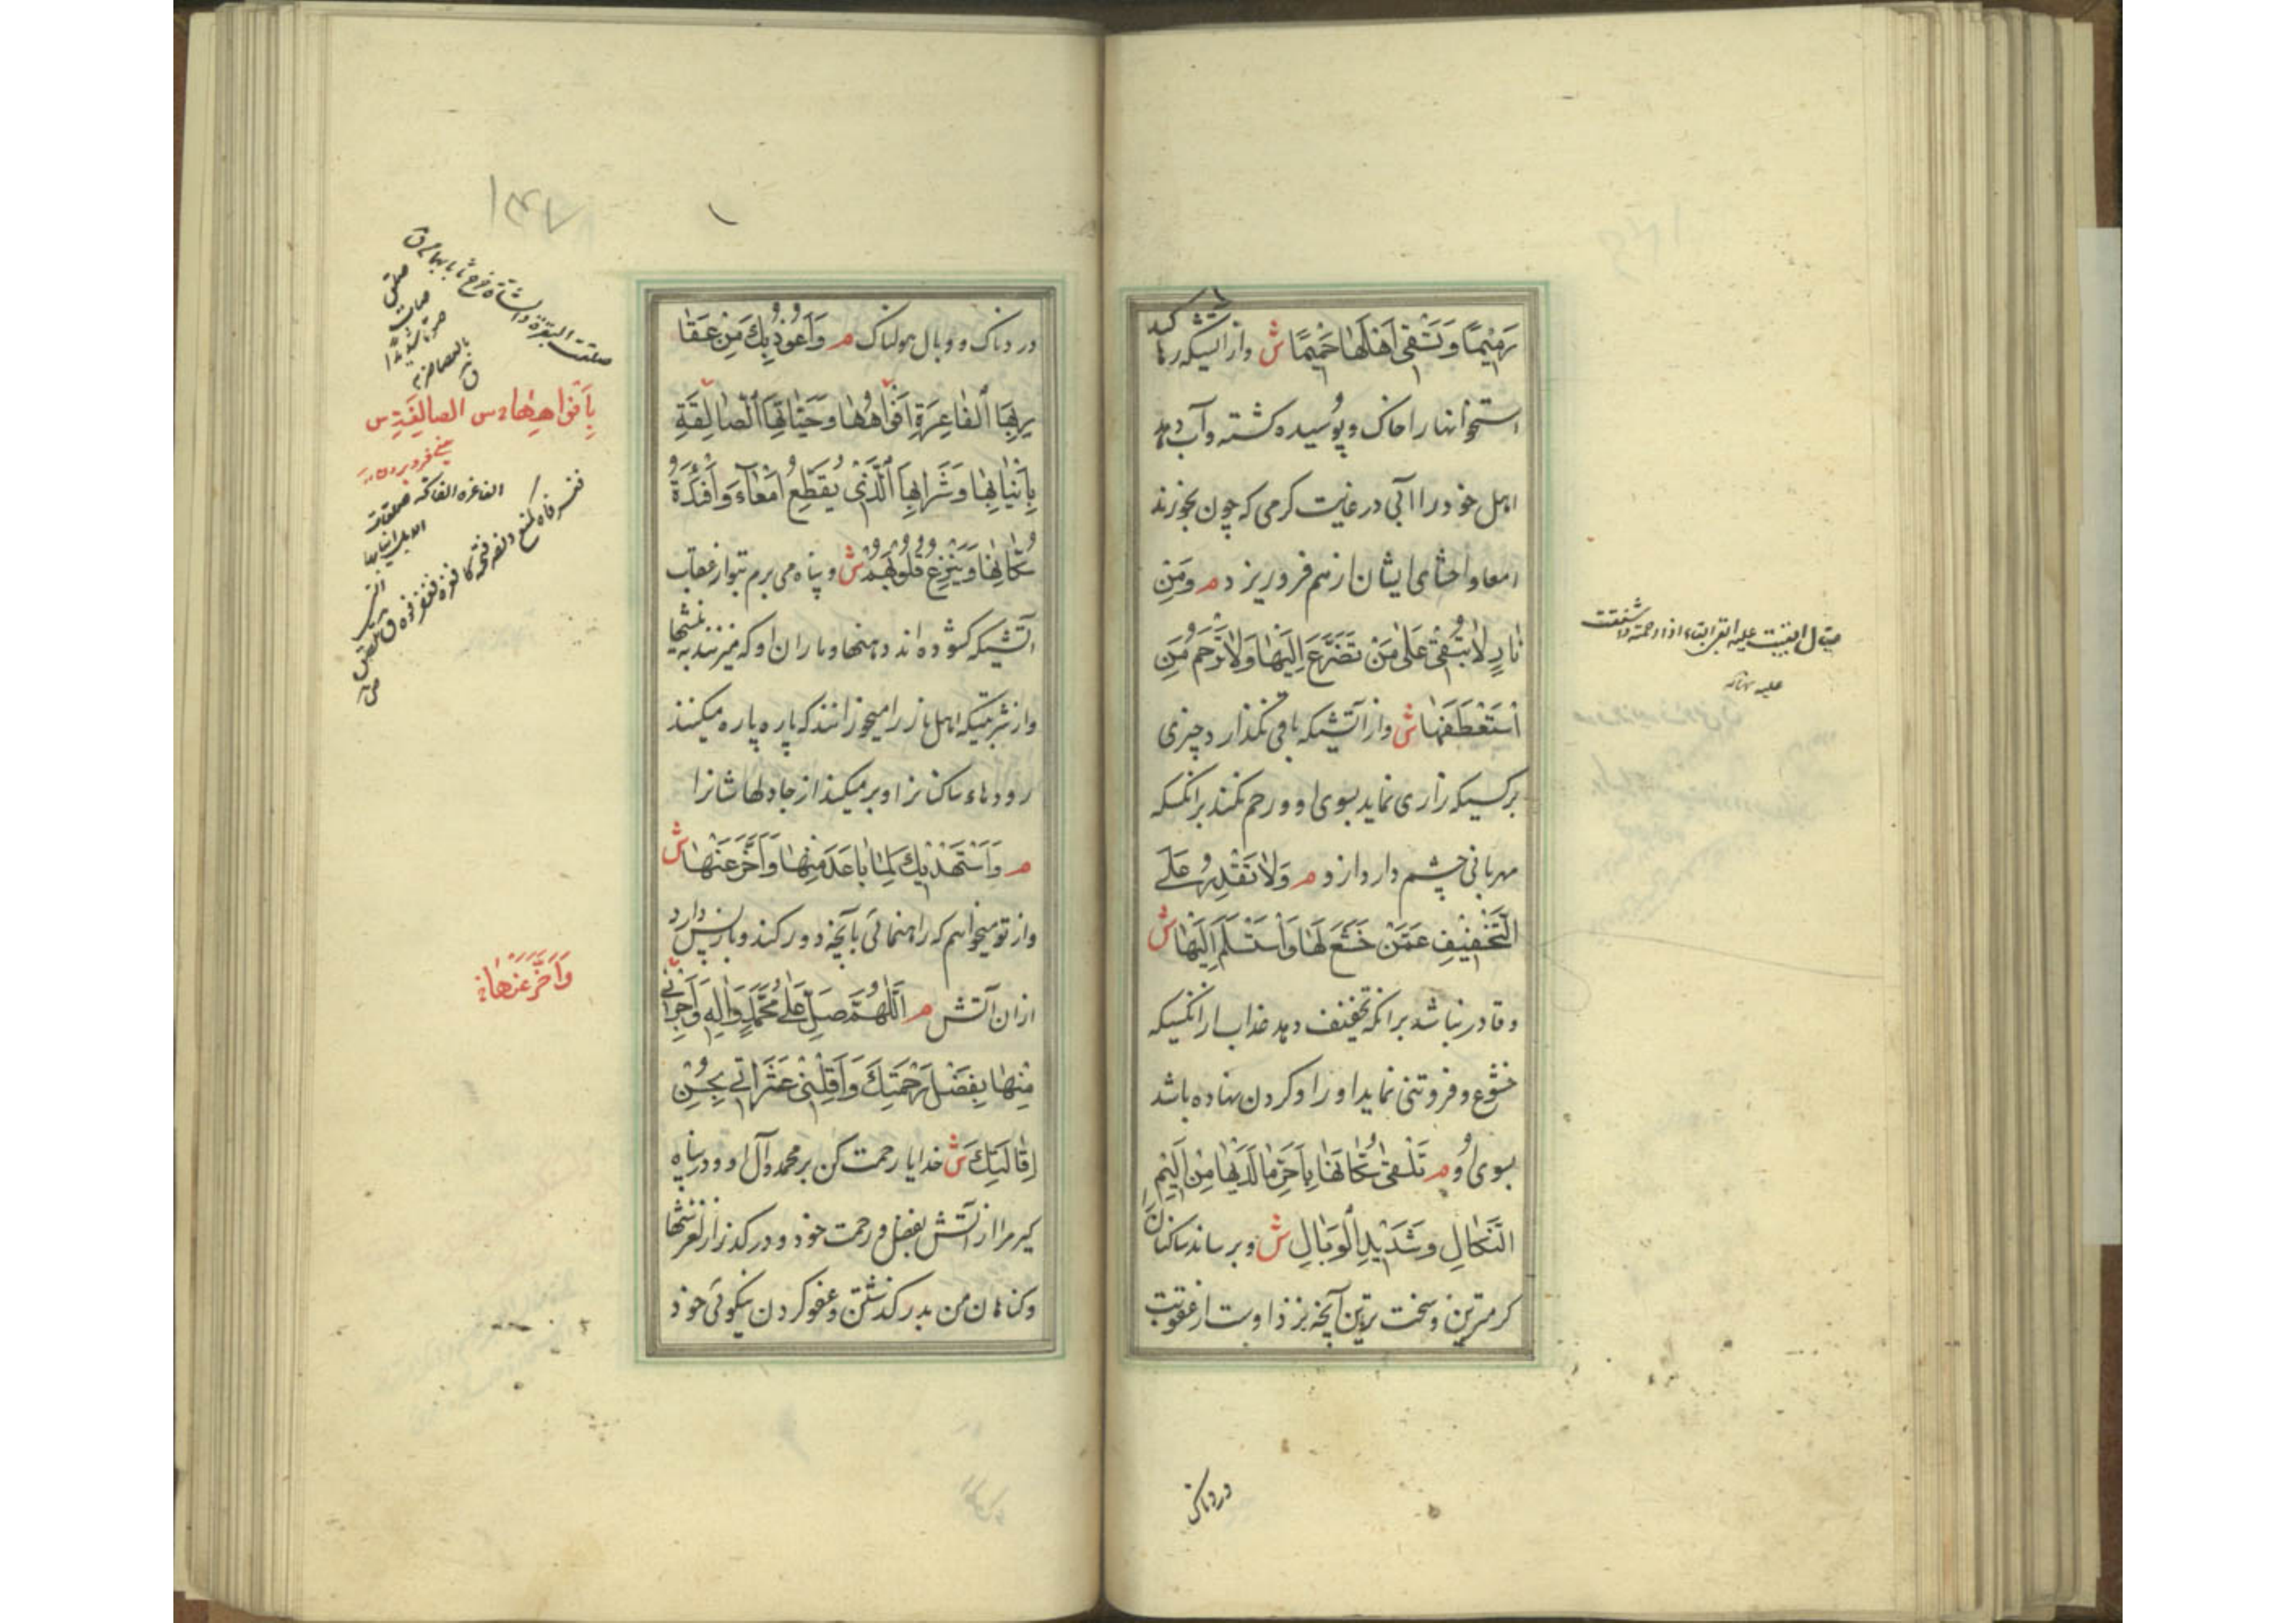 رَمِيمًا وَتَسْقِى أَهْلَهَا حَمِيمًا ش واز آتشیکه رها کند
استخوانها را خاک و پوسیده گشته و آب دهد
اهل خود را آبی در غایت گرمی که چون بخورند
امعا و احشای ایشان از هم فرو ریزد م وَمِنْ
نَارٍ لَا تُبْقِى عَلَى مَنْ تَضَرَّعَ إِلَيْهَا وَلَا تَرْحَمُ مَنِ
اسْتَعْطَفَهَا ش واز آتشیکه باقی نگذارد چیزی
بر کسیکه زاری نماید بسوی او و رحم نکند بر آنکسیکه
مهربانی چشم دارد ازو م وَلَا تَقْدِرُ عَلَى
التَّخْفِيفِ عَمَّنْ خَشَعَ لَهَا وَاسْتَسْلَمَ إِلَيْهَا ش
و قادر نباشد بر آنکه تخفیف دهد عذاب را از آنکسیکه
خشوع و فروتنی نماید او را و گردن نهاده باشد
بسوی او م تَلْقَى سُكَّانَهَا بِأَحَرِّ مَا لَدَيْهَا مِنْ أَلِيمِ
النَّكَالِ وَشَدِيدِ الْوَبَالِ ش و برساند ساکنان را
گرمترین و سخت ترین آنچه نزد اوست از عقوبت
یقال ابقیت علیه
علیه
دردناک
دردناک و وبال هولناک م وَأَعُوذُ بِكَ مِنْ عَقَا
رِبِهَا الْفَاغِرَةِ أَفْوَاهُهَا وَحَيَّاتِهَا الصَّالِقَةِ
بِأَنْيَابِهَا وَشَرَابِهَا الَّذِى يُقَطِّعُ أَمْعَاءَ وَأَفْئِدَةَ
سُكَّانِهَا وَيَنْزِعُ قُلُوبَهُمْ ش و پناه می برم بتو از عقارب
آتشیکه گشوده اند دهنها و ماران او که میزنند به نیشها
واز شربتیکه اهل نار را میخورانند که پاره پاره میکنند
رودهاء ساکنانرا و بر میکند از جا دلهاشانرا
م وَأَسْتَهْدِيكَ لِمَا بَاعَدَ مِنْهَا وَأَخَّرَ عَنْهَا ش
واز تو میخواهم که راهنمائی بآنچه دور کند و باز پس دارد
ازان آتش م اللَّهُمَّ صَلِّ عَلَى مُحَمَّدٍ وَآلِهِ وَأَجِرْنِى
مِنْهَا بِفَضْلِ رَحْمَتِكَ وَأَقِلْنِى عَثَرَاتِى بِحُسْنِ
إِقَالَتِكَ ش خدایا رحمت کن بر محمد وآل او و در پناه
گیر مرا از آتش بفضل و رحمت خود و در گذر از لغزشها
و گناهان من بدر گذشتن و عفو کردن نیکوئی خود
بِأَفْوَاهِهَا س الصالقة س
وَأَخَّرَ عَنْهَا